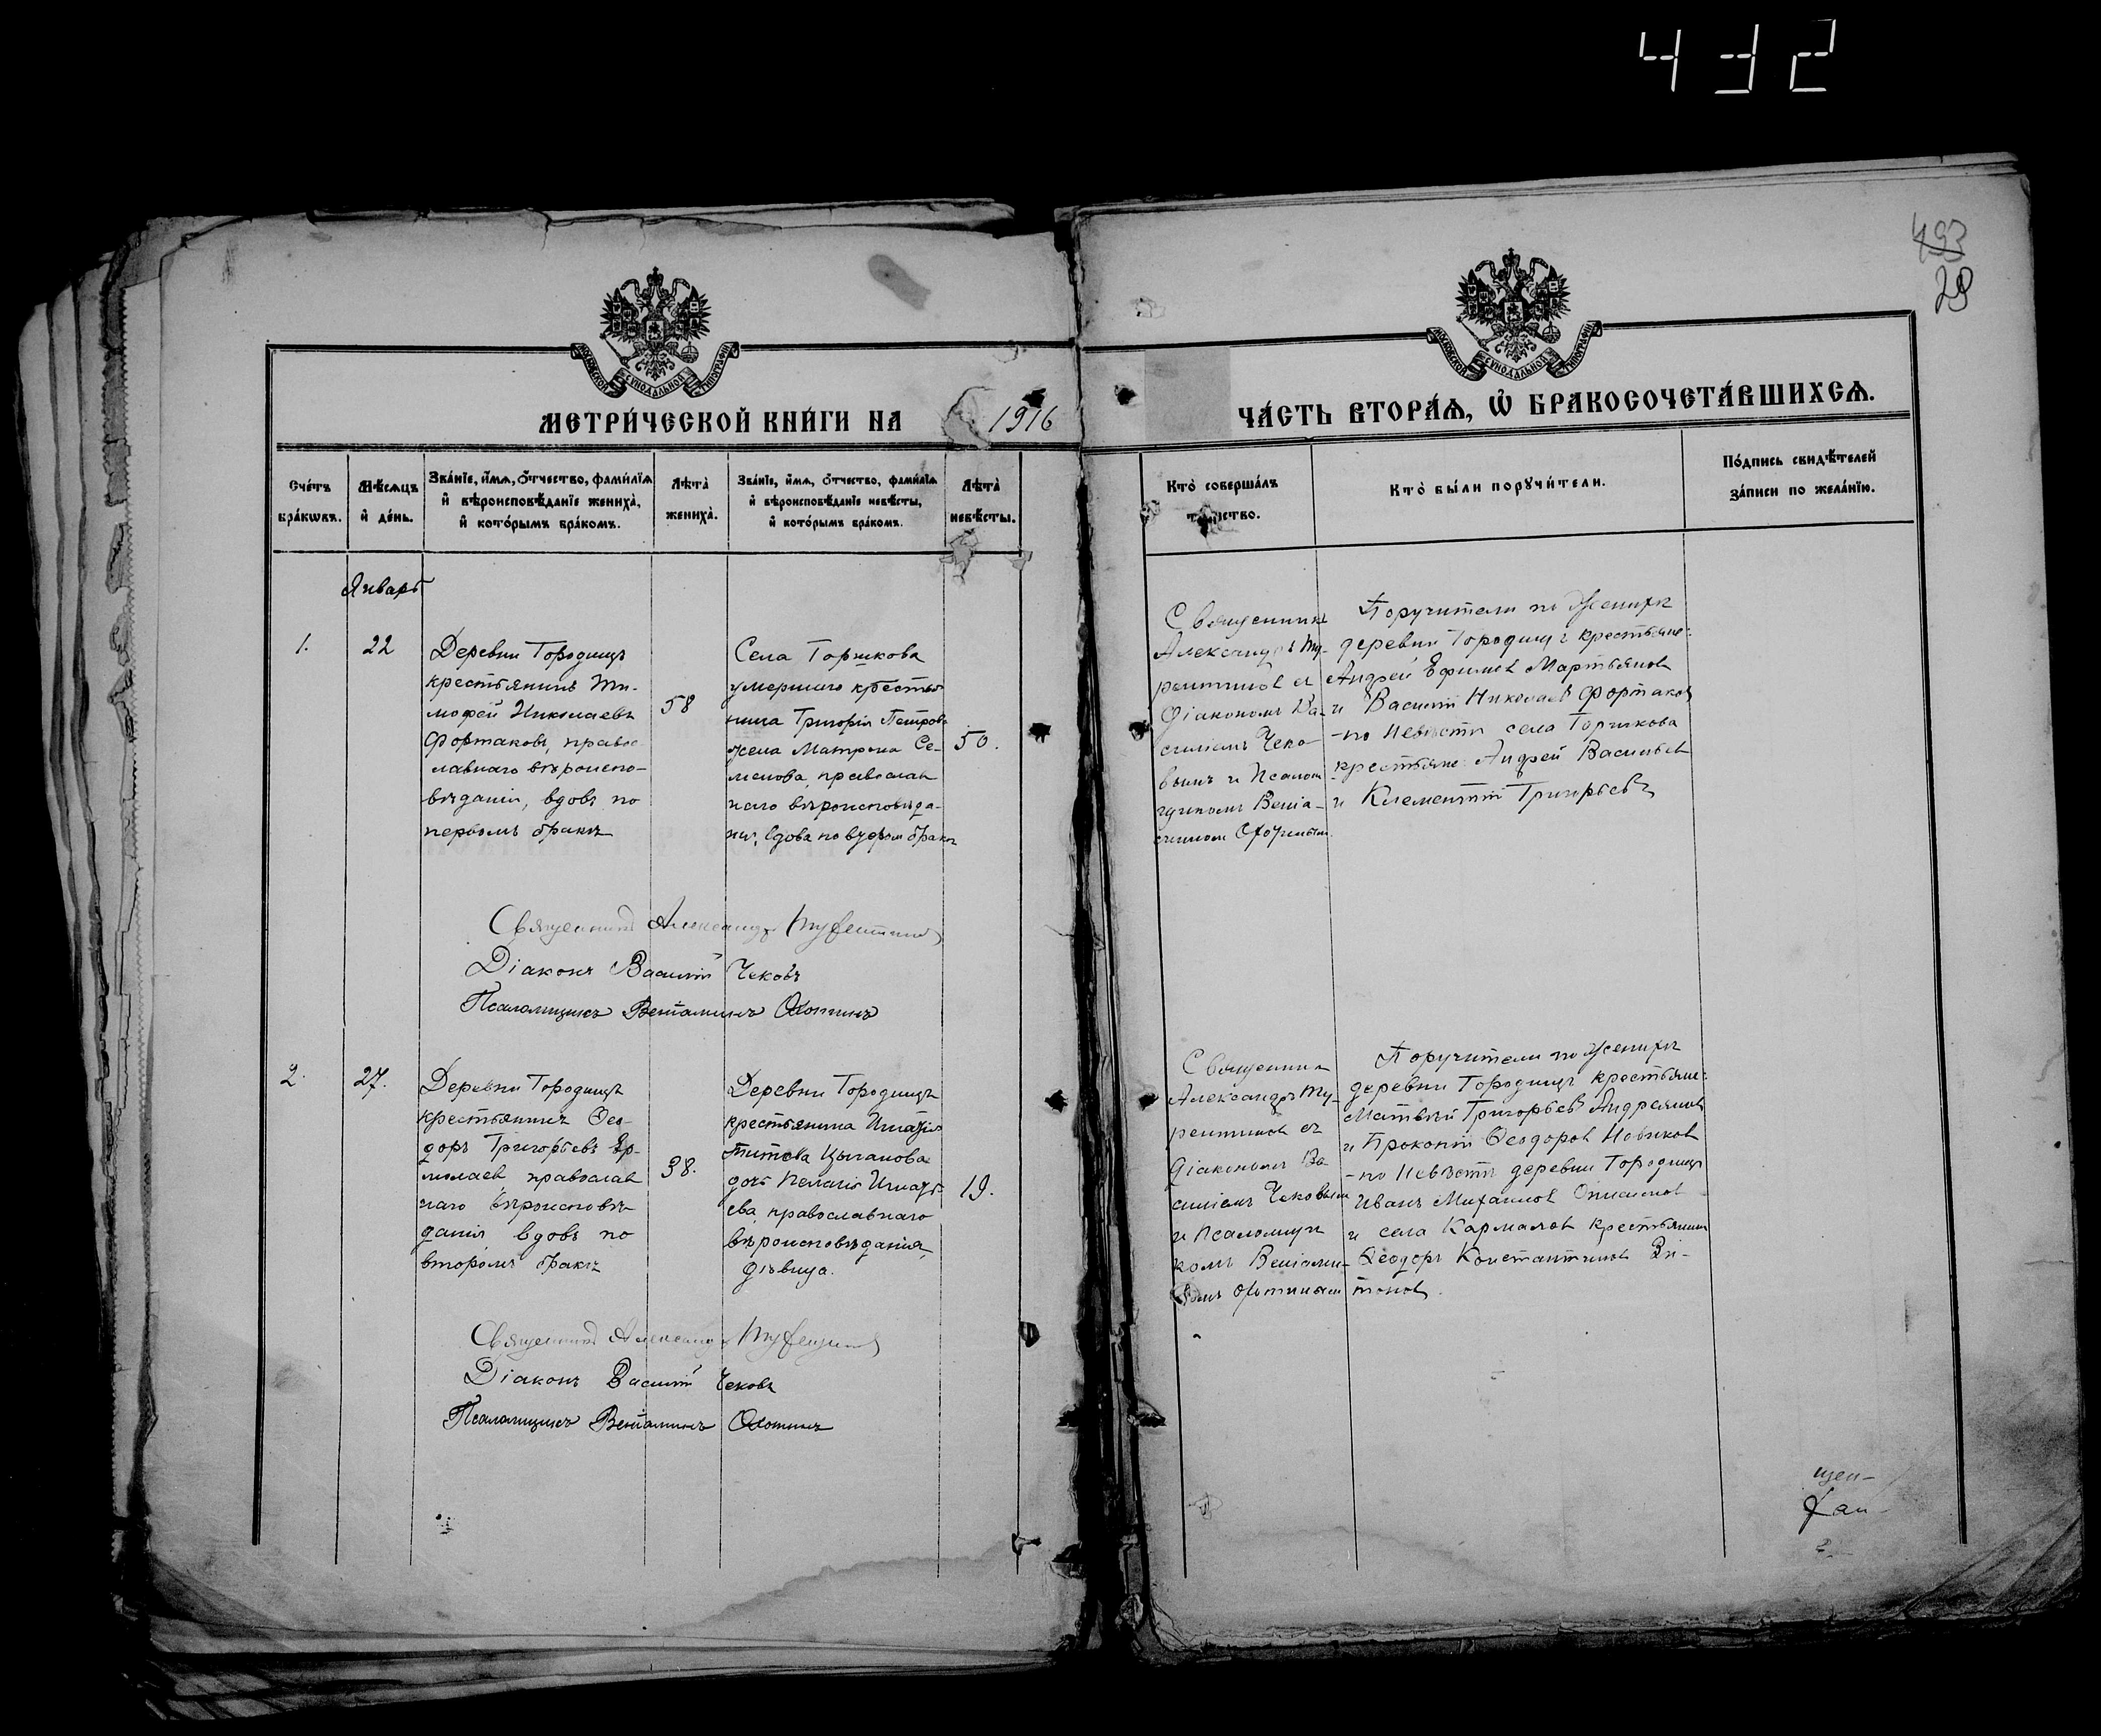 432
493
28
МОСКОВСКОЙ СѴНОДАЛЬНОЙ ТИПОГРАФІИ
МЕТРИ́ЧЕСКОЙ КНИ́ГИ НА 1916
Сче́тъ бра́кѡвъ.
Мѣ́сѧцъ и҆ де́нь.
Зва́нїе, и҆́мѧ, ѻ҆́тчество, фами́лїѧ и҆ вѣроисповѣ́данїе жениха̀, и҆ кото́рымъ бра́комъ.
Лѣ́та̀ жениха̀.
Зва́нїе, и҆́мѧ, ѻ҆́тчество, фами́лїѧ и҆ вѣроисповѣ́данїе невѣ́сты, и҆ кото́рымъ бра́комъ.
Лѣ́та̀ невѣ́сты.
Январь
1.
22
Деревни Городищъ
крестьянинъ Ти-
мофей Николаевъ
Фортаковъ, правос
лавнаго вѣроиспо-
вѣданія, вдовъ по
первомъ бракѣ
58
Села Горшкова
умершаго крестья
нина Григорія Петрова
жена Матрона Се-
менова, православ
наго вѣроисповѣда-
нія, вдова по второмъ бракѣ
50.
Священникъ Александръ
Діаконъ Василій Чековъ
Псаломщикъ Веніаминъ Охотинъ
2.
27.
Деревни Городищъ
крестьянинъ Ѳео-
доръ Григорьевъ Ер-
молаев православ
наго вѣроисповѣ-
данія вдовъ по
второмъ бракѣ
38.
Деревни Городищъ
крестьянина Игнатія
Титова Цыганова
дочь Пелагія Игнать-
ева, православнаго
вѣроисповѣданія,
дѣвица.
19.
Священникъ Александръ
Діаконъ Василій Чековъ
Псаломщикъ Веніаминъ Охотинъ
МОСКОВСКОЙ СѴНОДАЛЬНОЙ ТИПОГРАФІИ
ЧА́СТЬ ВТОРА́Ѧ, Ѡ҆ БРАКОСОЧЕТА́ВШИХСѦ.
Кто̀ соверша́лъ та́инство.
Кто̀ бы́ли порꙋчи́тели.
По́дпись свидѣ́телей за́писи по жела́нїю.
Священникъ
Александръ Ту-
рентинов съ
Діакономъ Ва-
силіемъ Чеко-
вымъ и Псалом
щикомъ Веніа-
миномъ Охотинымъ.
Поручители по женихѣ
деревни Городищъ крестьяне:
Андрей Ефимов Мартьянов
и Василій Николаев Фортаков
-по невѣстѣ села Горшкова
крестьяне: Андрей Васильев
и Климентій Григорьевъ
Священник
Александръ Ту-
рентинов съ
Діакономъ Ва-
силіемъ Чековым
и Псаломщи
комъ Веніами-
номъ Охотиным
Поручители по женихѣ
деревни Городищъ крестьяне:
Матвѣй Григорьев Андреянов
и Прокопій Ѳеодоров Новиков
-по невѣстѣ деревни Городищъ
Иванъ Михаилов
и села Кармалов крестьянин
Ѳеодоръ Константинов